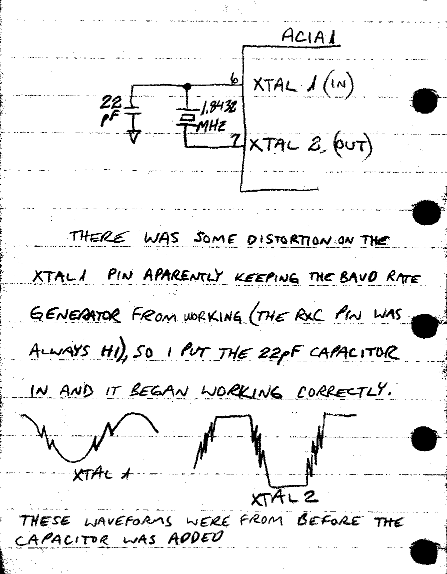 ACIA1
6
XTAL 1 (IN)
22
PF
1.8432
MHZ
7
XTAL 2 (OUT)
THERE WAS SOME DISTORTION ON THE
XTAL1 PIN APARENTLY KEEPING THE BAUD RATE
GENERATOR FROM WORKING (THE RXC PIN WAS
ALWAYS HI), SO I PUT THE 22PF CAPACITOR
IN AND IT BEGAN WORKING CORRECTLY.
XTAL 1
XTAL 2
THESE WAVEFORMS WERE FROM BEFORE THE
CAPACITOR WAS ADDED